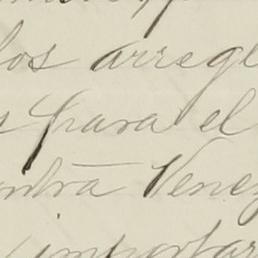 los arregl
s para el
ontra Venez
importar